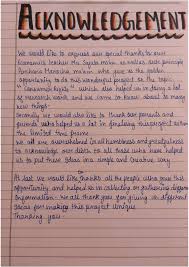 ACKNOWLEDGEMENT
We would like to express our special thanks to our
Economics teacher Ms. Sayda mam as well as our principle
Archana Narayina ma'am who gave us the golden
opportunity to do this wonderful project on the topic,
"Consumer Rights" which also helped us in doing a lot
of research work and we came to know about so many
new things.
Secondly we would also like to thank our parents and
friends who helped us a lot in finalising this project within
the limited time frame
We all are overwhelmed in all humbleness and gratefulness
to acknowledge our debts to all those who have helped
us to put these ideas in a simple and creative way
At last we would like thanks all the people who gave this
opportunity and helped us in collecting or gathering different
Information. We all thank you for giving us different
ideas for making this project unique
Thanking you